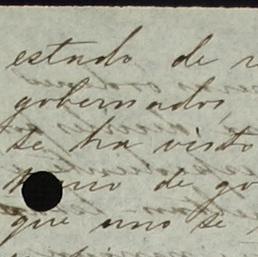 estado de
gobernados,
se ha visto
de go
que uno se